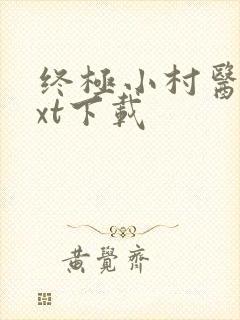 终極小村醫
xt下載
黄覺齊